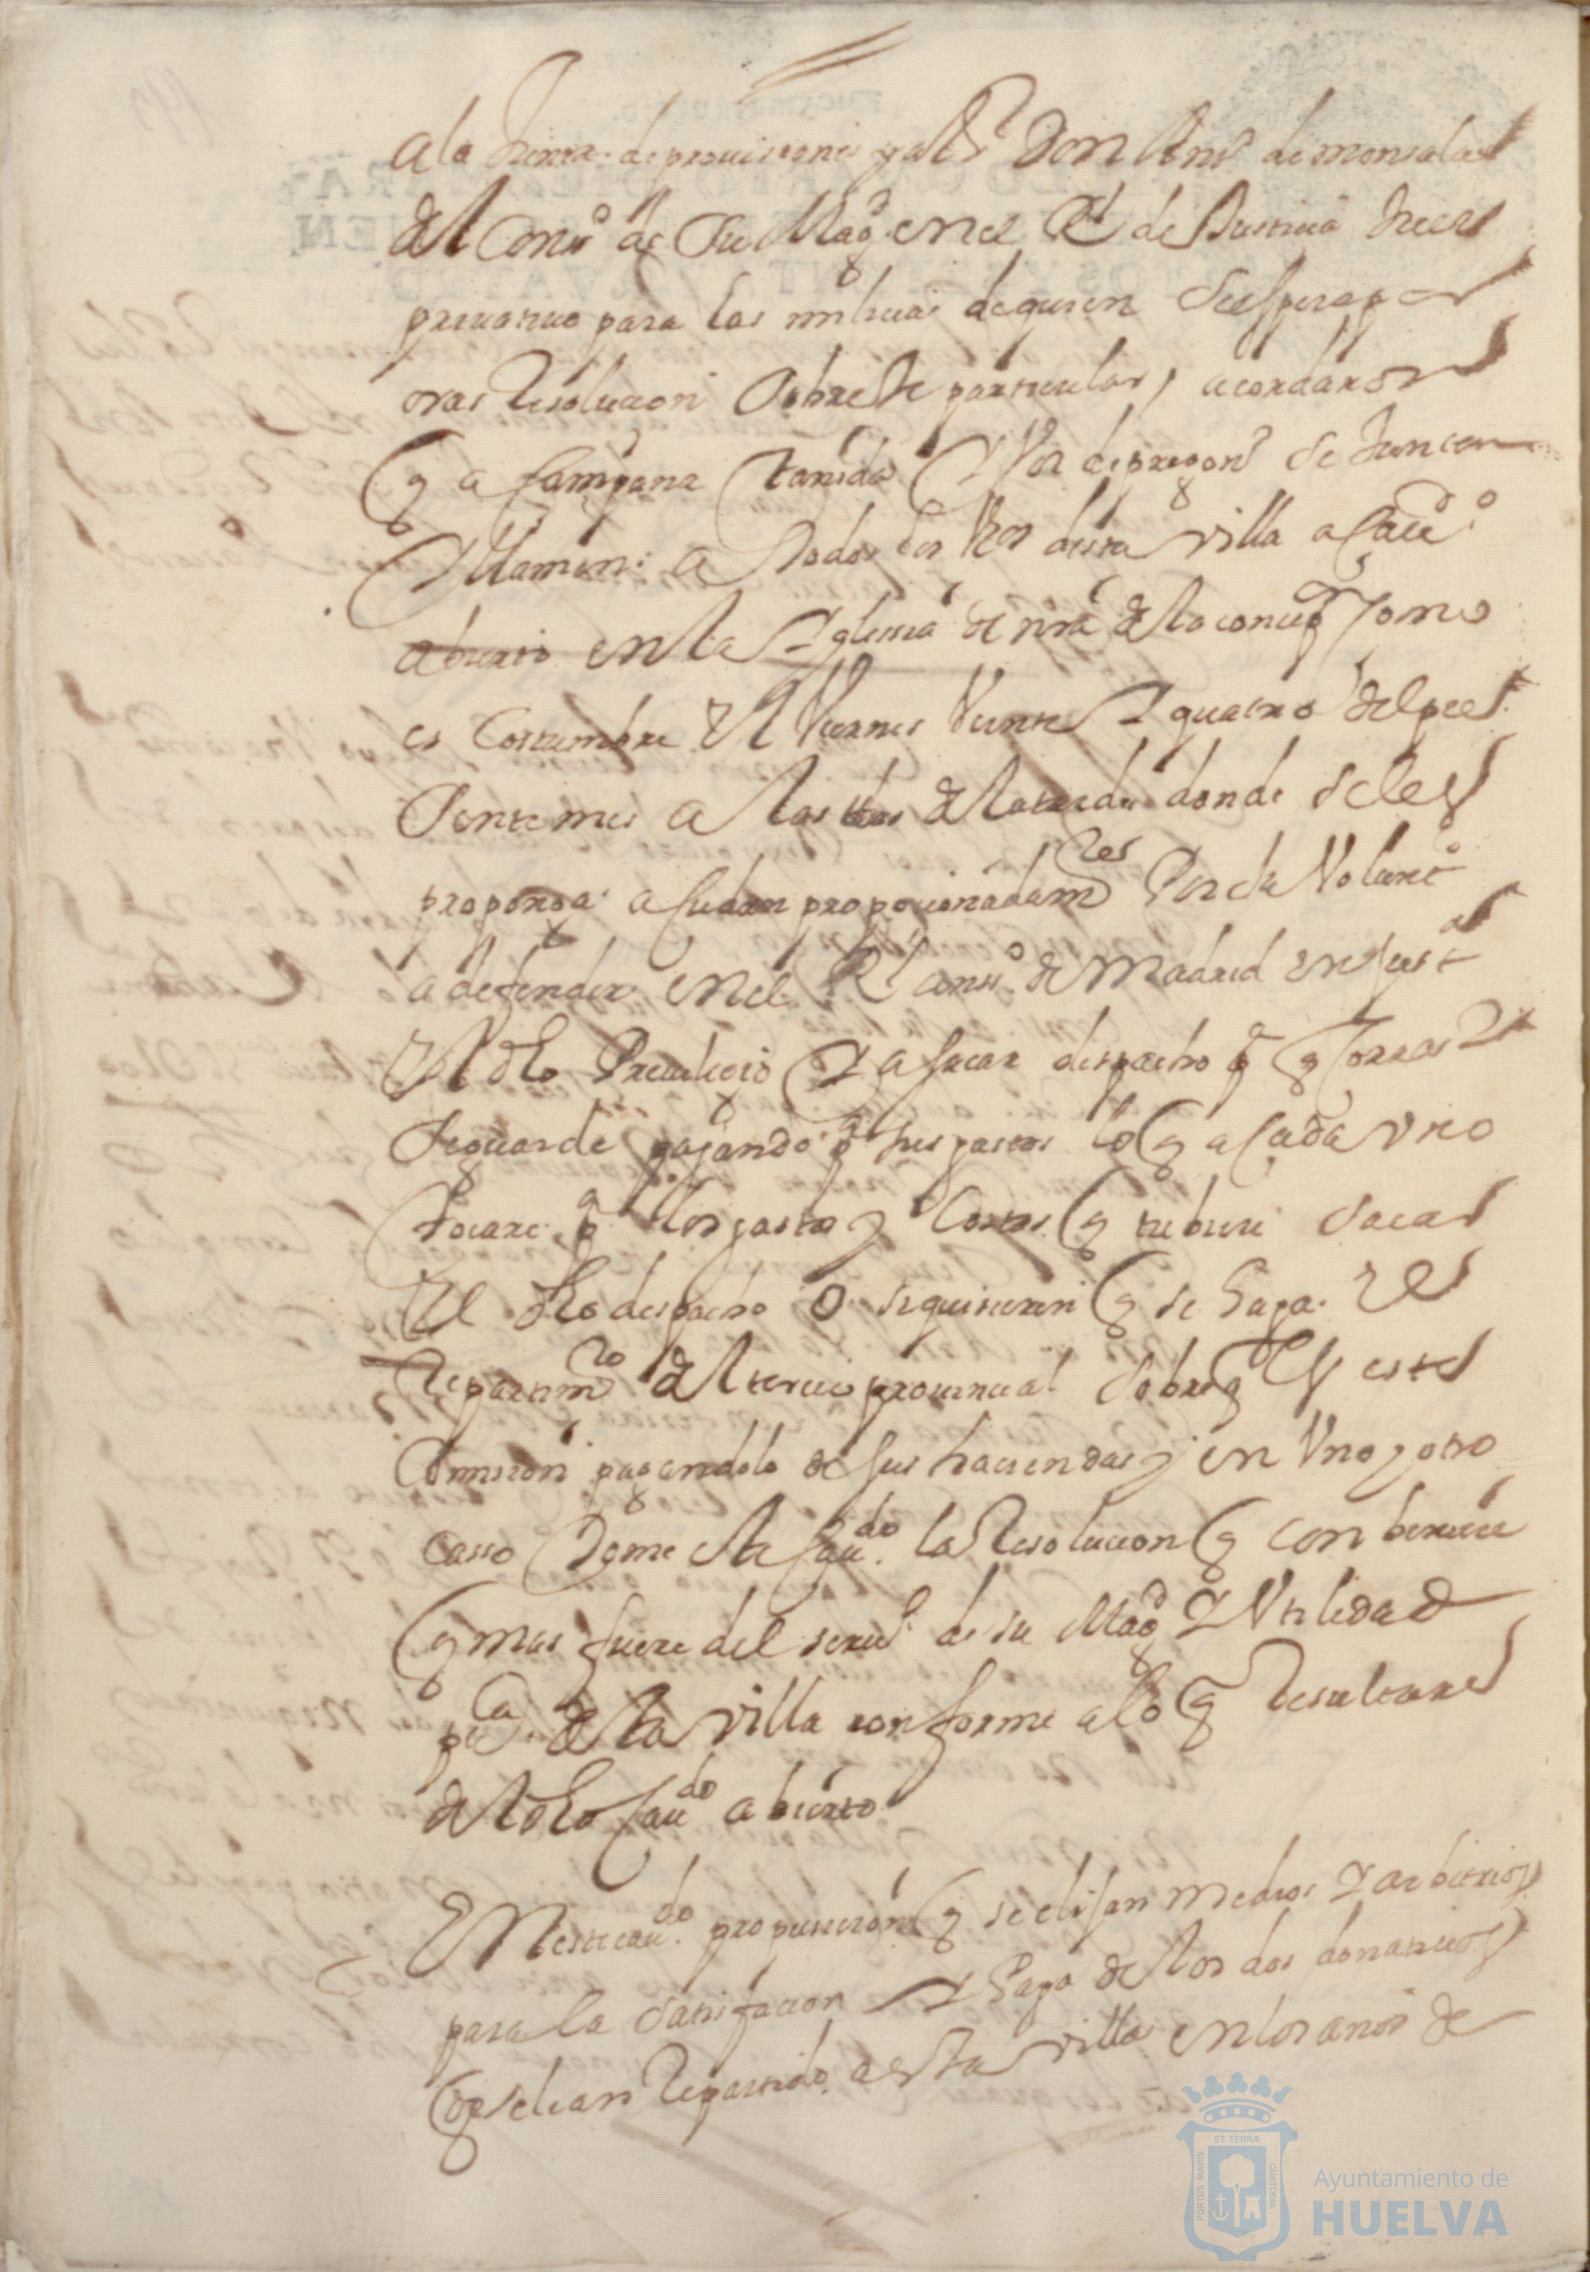 a la Junta de prouisiones y al Sr Don Anto de monsalue
del Conso de Su Magd en el Rl de Justicia Juez
priuatiuo para las milicias de quien se espera por
oras Resolucion Sobre este particular, acordaron
q a Campana tanida Y Voz de pregonº se Junten
Y llamen a todos los Vzos desta villa a Cauº
abierto en la Yglessia de nra sª de la concepon Como
es Costumbre El Viernes Veinte Y quatro del pre
Sente mes a las tres de la tarde donde se les
proponga acudan proporcionadamtes Por su Volunt
ad a defender en el Rl Conso de Madrid en Justª
El dho Preuilegio Y a sacar despacho pª q Corra Y
se guarde pagando pª sus gastos lo q a Cada vno
tocare pª los gastos y Costas q tubiere sacar
El dho despacho O si quisieren q se haga El
Repartimto del tercio prouincial sobre q Es esta
Comision pagandolo de sus haciendas y en Vno y otro
casso tome este Caudo la Resolucion q conbeniere
q mas fuere del seruº de su Magd Y Vtilidad
pca de esta villa conforme a lo q Resultare
del dho Caudo abierto
En este caudo propusieron q se elijan medios Y arbitrios
para la satisfacion Y Paga de los dos donatiuos
q se le an Repartido a esta villa en los años de
Ayuntamiento de
HUELVA
PORTUS MARIS
ET TERRÆ
CUSTODIA